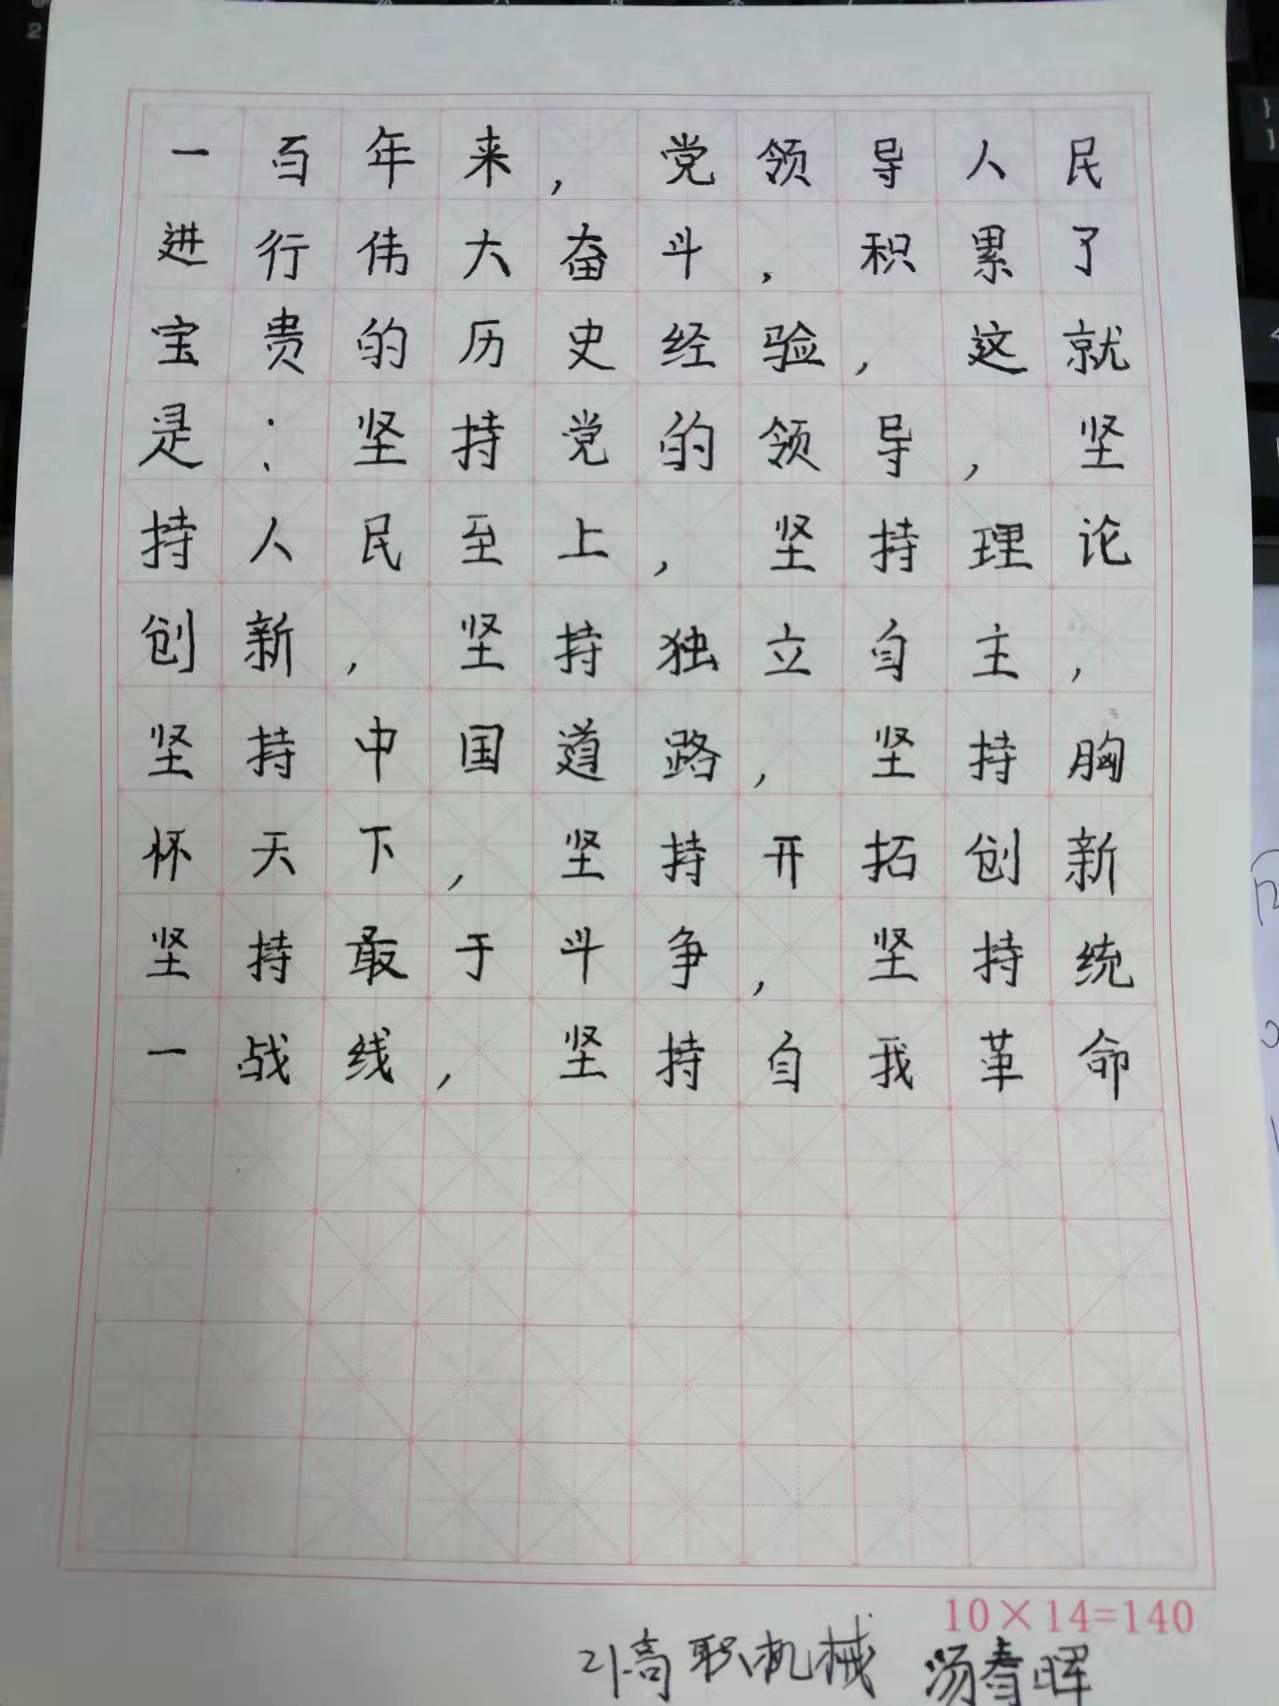 一百年来，党领导人民
进行伟大奋斗，积累了
宝贵的历史经验，这就
是：坚持党的领导，坚
持人民至上，坚持理论
创新，坚持独立自主，
坚持中国道路，坚持胸
怀天下，坚持开拓创新
坚持敢于斗争，坚持统
一战线，坚持自我革命
10×14=140
21高职机械 汤春晖